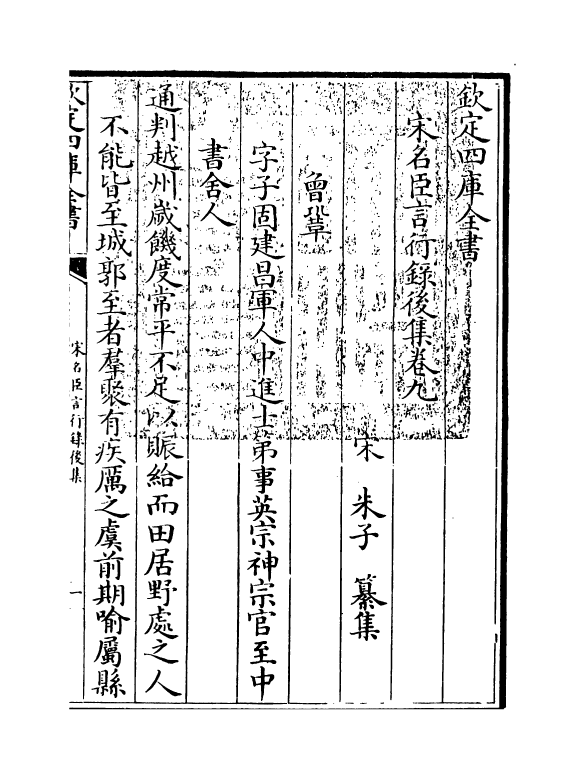 欽定四庫全書
宋名臣言行錄後集卷九
宋 朱子 纂集
曾鞏
字子固建昌軍人中進士第事英宗神宗官至中
書舍人
通判越州歲饑度常平不足以賑給而田居野處之人
不能皆至城郭至者羣聚有疾厲之虞前期喻屬縣
欽定四庫全書
宋名臣言行錄後集
一